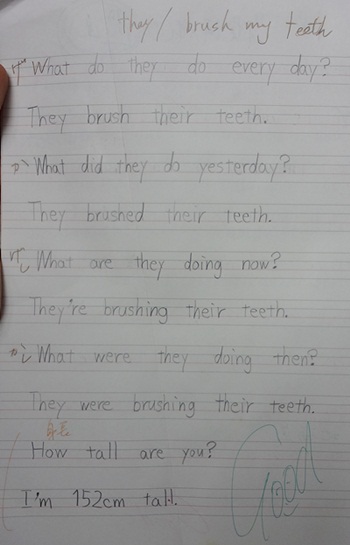 they / brush my teeth
What do they do every day?
They brush their teeth.
What did they do yesterday?
They brushed their teeth.
What are they doing now?
They're brushing their teeth.
What were they doing then?
They were brushing their teeth.
身長
How tall are you?
I'm 152cm tall.
Good